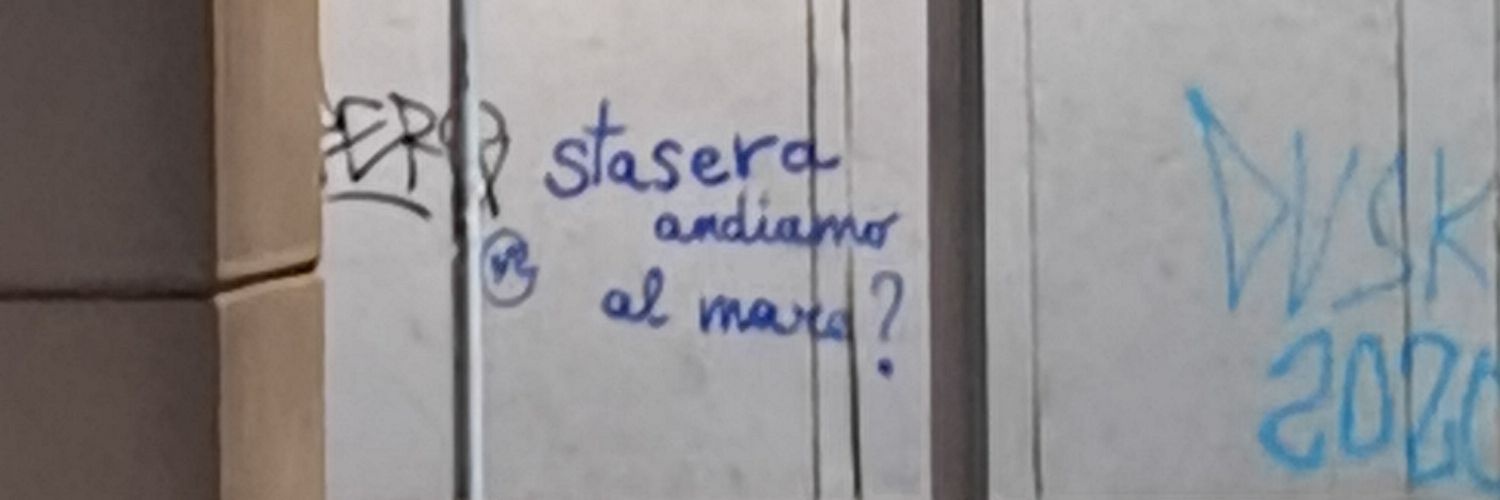 stasera
andiamo
al mare?
DUSK
2020